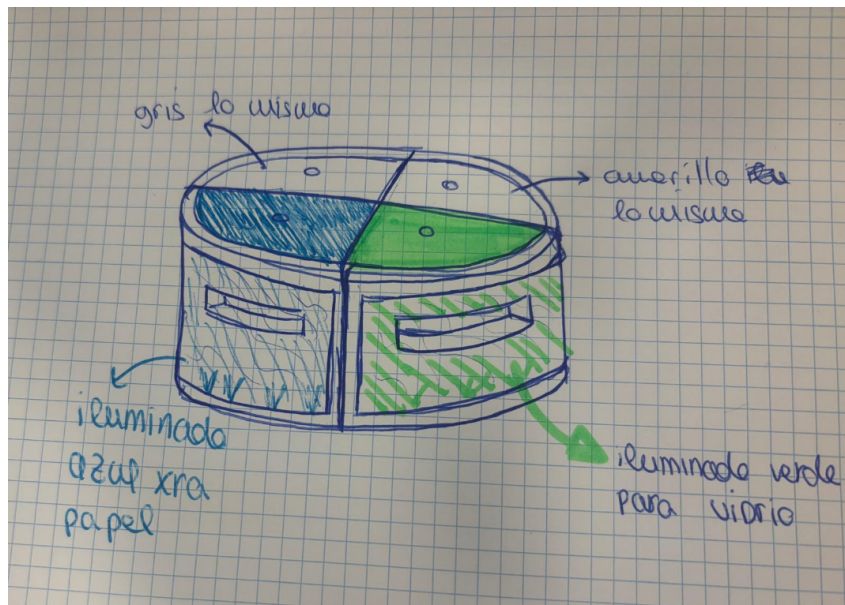 gris lo mismo
amarillo
lo mismo
iluminado
azul xra
papel
iluminado verde
para vidrio